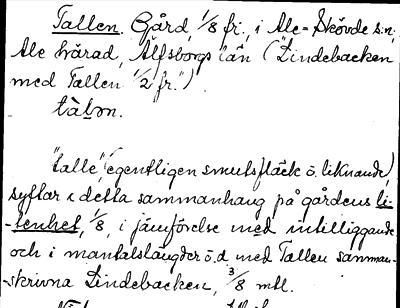 Tallen. Gård, 1/8 fr., i Ale-Skövde s:n,
Ale härad, Älfsborgs län ("Lindebacken
med Tallen 1/2 fr.")
tàḷən.
"talle" (egentligen smutsfläck o. liknande)
syftar i detta sammanhang på gårdens li-
-tenhet, 1/8, i jämförelse med intilliggande
och i mantalslängder o.d. med Tallen samman-
-skrivna Lindebacken, 3/8 mtl.